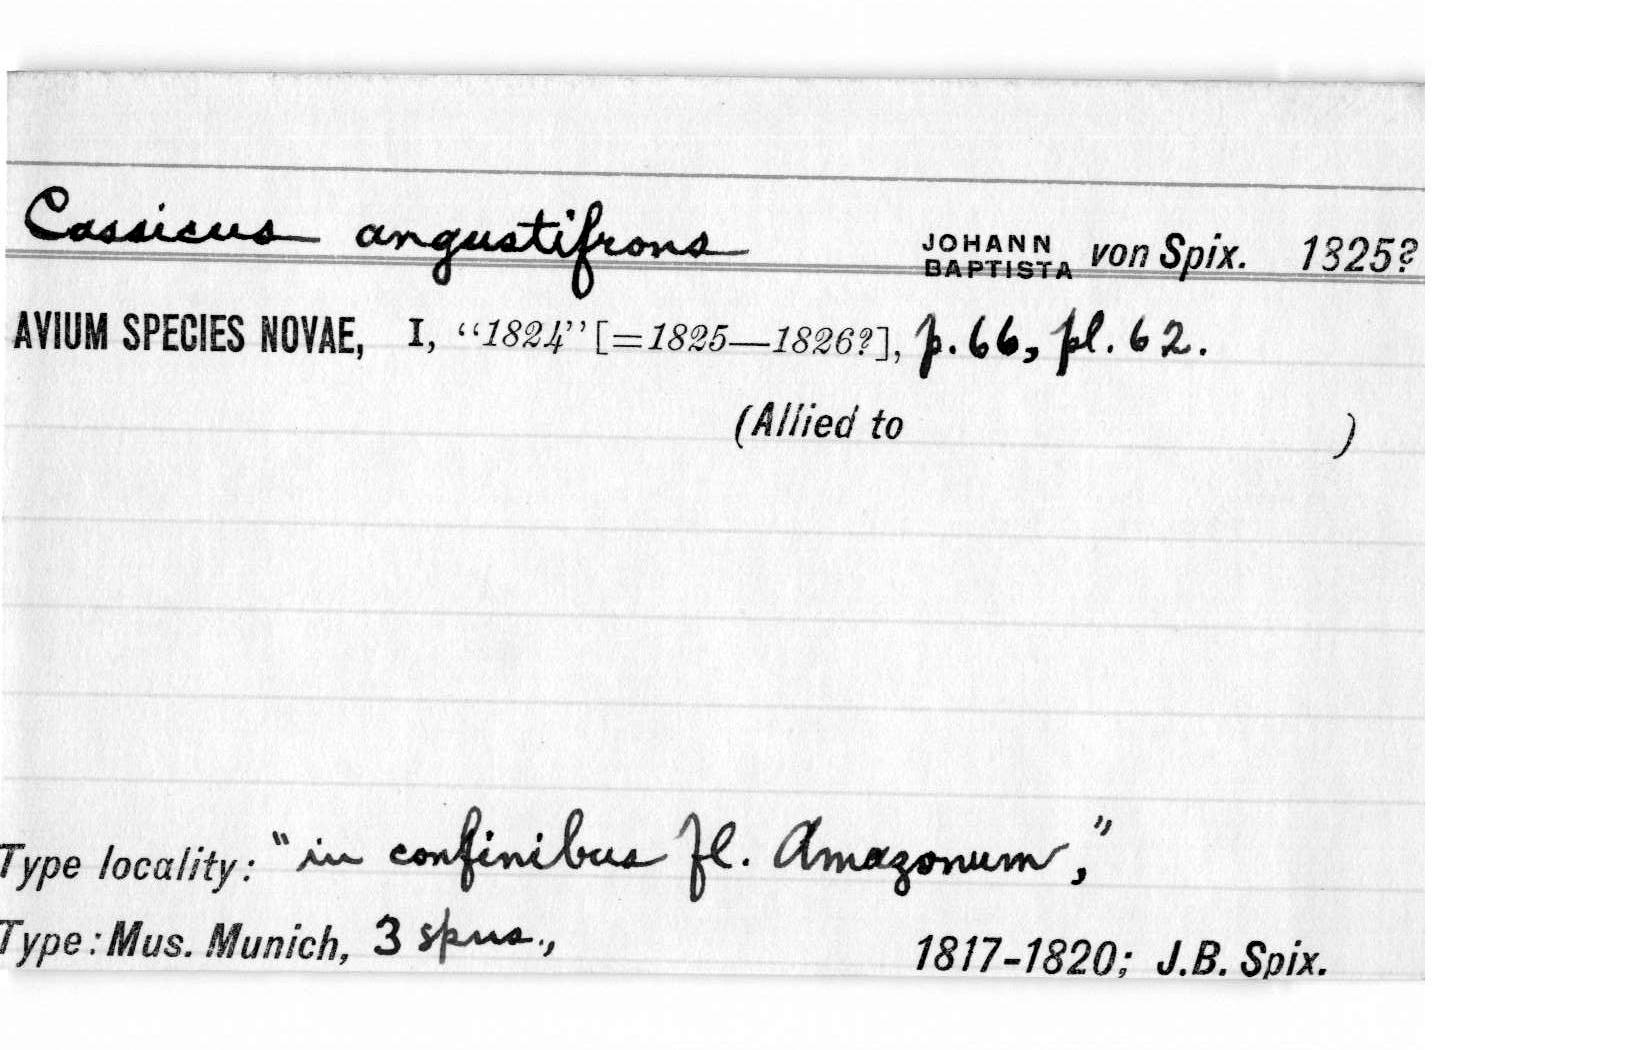 Cassicus angustifrons JOHANN BAPTISTA von Spix. 1825?
AVIUM SPECIES NOVAE, I, “1824” [=1825—1826?], p. 66, pl. 62.
(Allied to )
Type locality: "in confinibus fl. Amazonum,"
Type: Mus. Munich, 3 spns., 1817-1820; J.B. Spix.